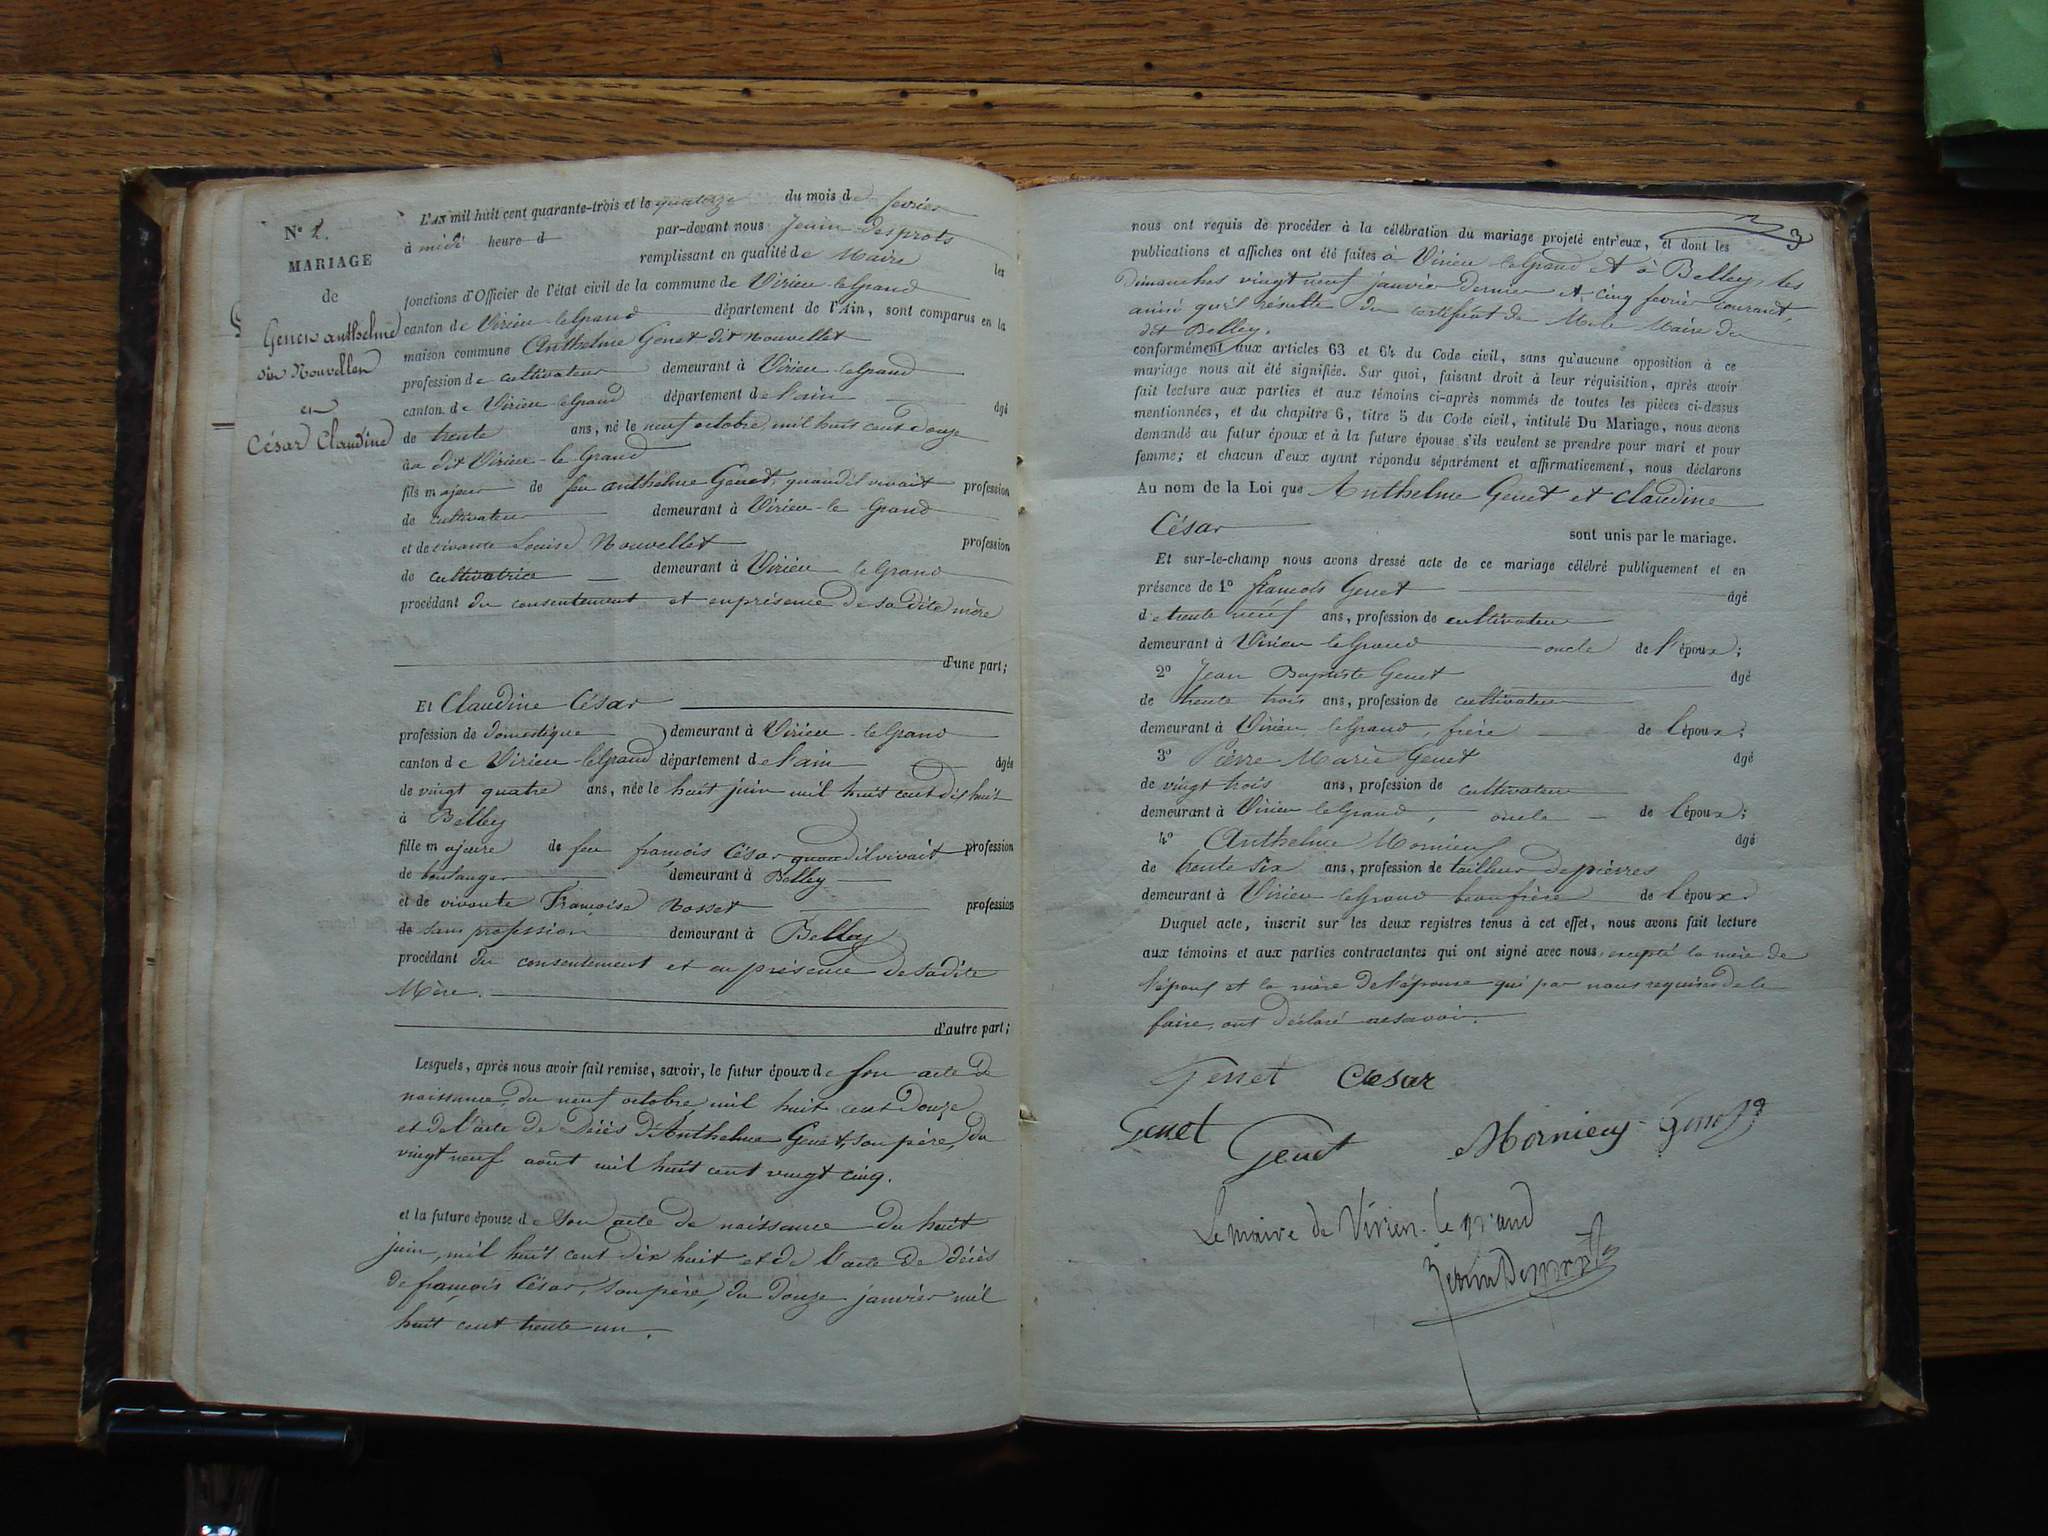 N° 2.
MARIAGE
de
Genet anthelme
dit Nouvellet
et
César Claudine
L'AN mil huit cent quarante-trois et le quatorze du mois de fevrier
à midi heure d par-devant nous Jenin Desprots
remplissant en qualité de Maire les
fonctions d'Officier de l'état civil de la commune de Virieu-le-Grand
canton de Virieu-le-Grand département de l'Ain, sont comparus en la
maison commune Anthelme Genet dit Nouvellet
profession de cultivateur demeurant à Virieu-le-Grand
canton de Virieu-le-Grand département de l'ain âgé
de trente ans, né le neuf octobre mil huit cent douze
au dit Virieu-le-Grand
fils majeur de feu anthelme Genet, quand il vivait profession
de cultivateur demeurant à Virieu-le-Grand
et de vivante Louise Nouvellet profession
de cultivatrice demeurant à Virieu le Grand
procédant du consentement et en présence de sa dite mère
d'une part;
Et Claudine César
profession de domestique demeurant à Virieu-le-Grand
canton de Virieu-le-Grand département de l'ain âgée
de vingt quatre ans, née le huit juin mil huit cent dix huit
à Belley
fille majeure de feu françois César quand il vivait profession
de boulanger demeurant à Belley
et de vivante Françoise Rosset profession
de sans profession demeurant à Belley
procédant du consentement et en présence de sa dite
Mère.
d'autre part;
Lesquels, après nous avoir fait remise, savoir, le futur époux de son acte de
naissance, du neuf octobre mil huit cent douze
et de l'acte de Décès d'Anthelme Genet, son père, du
vingt neuf août mil huit cent vingt cinq.
et la future épouse de son acte de naissance du huit
juin, mil huit cent dix huit et de l'acte de décès
de françois César, son père, du douze janvier mil
huit cent trente un.
3
nous ont requis de procéder à la célébration du mariage projeté entr'eux, et dont les
publications et affiches ont été faites à Virieu le Grand et à Belley, les
dimanches vingt neuf janvier dernier et cinq fevrier courant,
ainsi qu'il résulte du certificat de M. le Maire du
dit Belley.
conformément aux articles 63 et 64 du Code civil, sans qu'aucune opposition à ce
mariage nous ait été signifiée. Sur quoi, faisant droit à leur réquisition, après avoir
fait lecture aux parties et aux témoins ci-après nommés de toutes les pièces ci-dessus
mentionnées, et du chapitre 6, titre 5 du Code civil, intitulé Du Mariage, nous avons
demandé au futur époux et à la future épouse s'ils veulent se prendre pour mari et pour
femme; et chacun d'eux ayant répondu séparément et affirmativement, nous déclarons
Au nom de la Loi que Anthelme Genet et claudine
César sont unis par le mariage.
Et sur-le-champ nous avons dressé acte de ce mariage célébré publiquement et en
présence de 1° françois Genet âgé
de trente neuf ans, profession de cultivateur
demeurant à Virieu le Grand oncle de l'époux;
2° Jean Baptiste Genet âgé
de trente trois ans, profession de cultivateur
demeurant à Virieu le Grand, frère de l'époux;
3° Pierre Marie Genet âgé
de vingt trois ans, profession de cultivateur
demeurant à Virieu le Grand, oncle de l'époux;
4° Anthelme Mornieux âgé
de trente six ans, profession de tailleur de pierres
demeurant à Virieu le Grand beau frère de l'époux.
Duquel acte, inscrit sur les deux registres tenus à cet effet, nous avons fait lecture
aux témoins et aux parties contractantes qui ont signé avec nous, excepté la mère de
l'époux et la mère de l'épouse qui par nous requises de le
faire, ont déclaré ne savoir.
Genet César
Genet Genet Mornieux Genet
Le maire de Virieu-le grand
Jenin Desprots